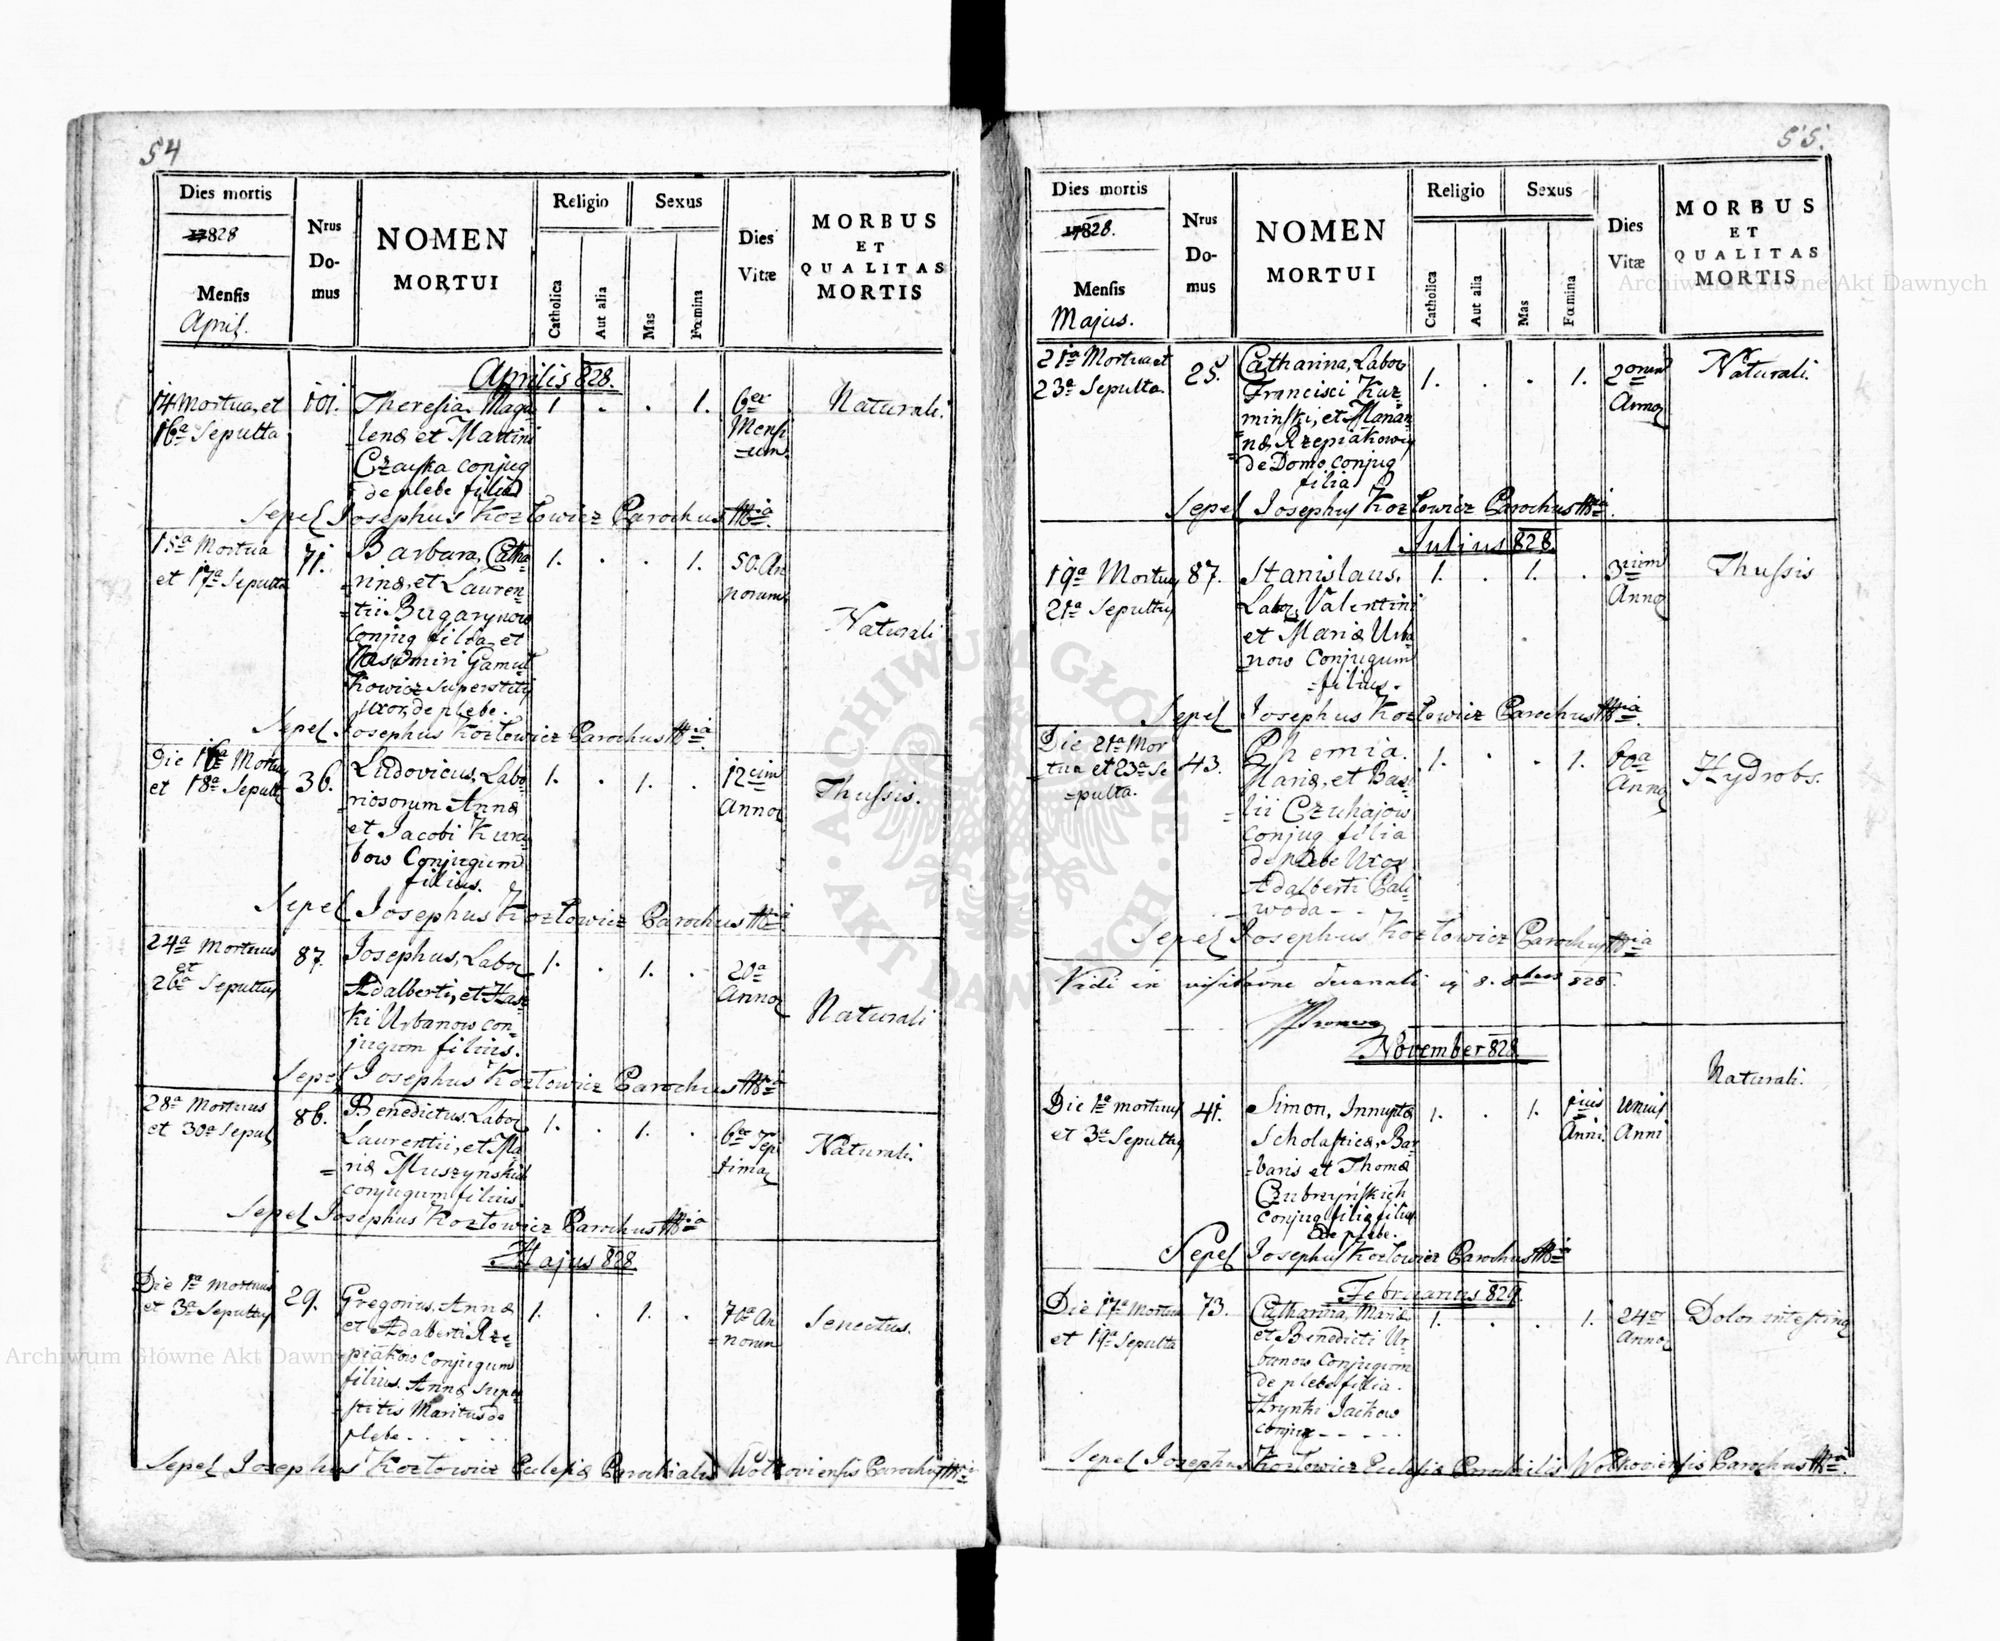 54
Dies mortis
1828
Mensis
April.
Nrus
Do-
mus
NOMEN
MORTUI
Religio
Catholica
Aut alia
Sexus
Mas
Fœmina
Dies
Vitæ
MORBUS
ET
QUALITAS
MORTIS
Aprilis 828.
14 Mortua, et
16a Sepulta
101.
Theresia Magda
lenæ et Martini
Czayka conjug
de plebe filia
1 . . 1.
6ex
Mensi
um
Naturali.
Sepel Josephus Kozłowicz Parochus
15a Mortua
et 17a Sepulta
71.
Barbara, Catha
rinæ, et Lauren
tii Bugarynow
Conjug filia et
Casimiri Gamul
kowicz Superstitis
uxor, de plebe.
1. . . 1.
50. An
norum
Naturali
Sepel Josephus Kozłowicz Parochus
Die 16a Mortuus
et 18a Sepult
36.
Ludovicus, Labo
riosorum Annæ
et Jacobi Kuru
bow Conjugum
filius.
1. . 1. .
12cim
Annor
Thussis.
Sepel Josephus Kozłowicz Parochus
24a Mortuus
et
26a Sepultus
87.
Josephus, Labor
Adalberti, et
ki Urbanow con
jugum filius.
1. . 1. .
20a
Annor
Naturali
Sepel Josephus Kozłowicz Parochus
28a Mortuus
et 30a Sepul
86.
Benedictus Labor
Laurentii, et Ma
riæ Muszynskich
conjugum filius
1. . 1. .
6ex Sep
timar
Naturali.
Sepel Josephus Kozłowicz Parochus
Majus 828
Die 1a Mortuus
et 3a Sepultus
29.
Gregorius, Annæ
et Adalberti Rze
piakow Conjugum
filius. Annæ super
stitis Maritus de
plebe
1. . 1. .
70a An
norum
Senectus.
Sepel Josephus Kozłowicz Eclesiæ Parochialis Wołkoviensis Parochus
55.
Dies mortis
1828.
Mensis
Majus.
Nrus
Do-
mus
NOMEN
MORTUI
Religio
Catholica
Aut alia
Sexus
Mas
Fœmina
Dies
Vitæ
MORBUS
ET
QUALITAS
MORTIS
21a Mortua et
23a Sepulta
25.
Catharina, Labor
Francisci Kuz
minski, et Marian
næ Rzepiakow
de Domo, conjug
filia
1. . . 1.
2orum
Annor
Naturali.
Sepel Josephus Kozłowicz Parochus
Julius 828.
19a Mortuus
21a Sepultus
87.
Stanislaus,
Labor, Valentini
et Mariæ Urba
now Conjugum
filius.
1. . 1. .
3rium
Annor
Thussis
Sepel Josephus Kozłowicz Parochus
Die 21a Mor
tua et 23a Se
pulta.
43.
Phemia.
Mariæ, et Basi
lii Czuhajow
conjug filia
de plebe Uxor
Adalberti Pali
woda
1. . . 1.
60a
Annor
Hydrobs.
Sepel Josephus Kozłowicz Parochus
Vidi in visitaone decanali 8. 8bris 828.
November 828
Die 1a mortuus
et 3a Sepultus
41.
Simon, Innuptæ
Scholasticæ, Bar
baris et Thomæ
Czubrzyńskich
Conjug filiæ filius
De plebe.
1. . 1.
1ius
Anni.
unius
Anni
Naturali.
Sepel Josephus Kozłowicz Parochus
Februarius 829.
Die 17a Mortua
et 19a Sepulta
73.
Catharina, Mariæ
et Benedicti Ur
banow Conjugum
de plebe filia.
Hrynki Jackow
conjux
1. . . 1.
24or
Annor
Dolor intestinor
Sepel Josephus Kozłowicz Eclesiæ Parochialis Wołkoviensis Parochus
Archiwum Główne Akt Dawnych
Archiwum Główne Akt Dawnych
ARCHIWUM GŁÓWNE AKT DAWNYCH